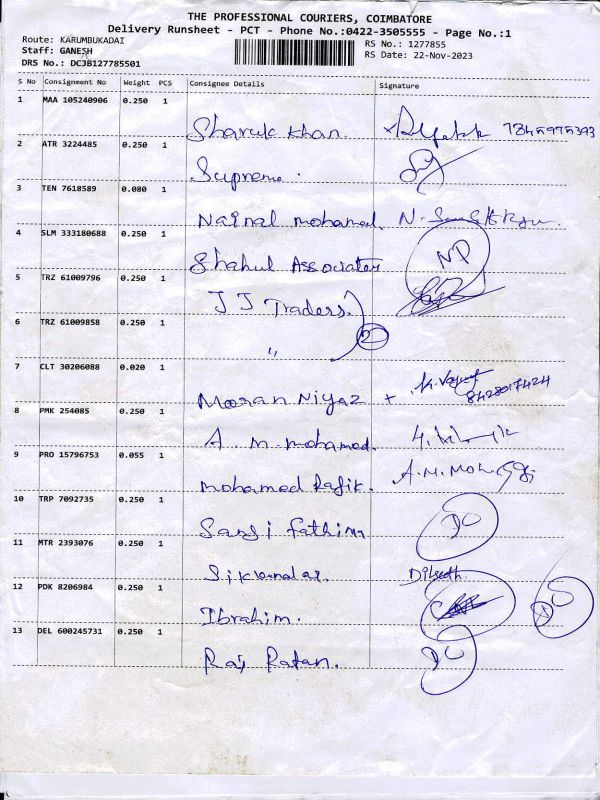 THE PROFESSIONAL COURIERS, COIMBATORE
Delivery Runsheet - PCT - Phone No.:0422-3505555 - Page No.:1
Route: KARUMBUKADAI
RS No.: 1277855
Staff: GANESH
RS Date: 22-Nov-2023
DRS No.: DCJB127785501
S No Consignment No Weight PCS Consignee Details Signature
1 MAA 105240906 0.250 1
Sharuk Khan
2 ATR 3224485 0.250 1
Supreme.
3 TEN 7618589 0.080 1
Nainal mohamed.
4 SLM 333180688 0.250 1
Shahul Associates NP
5 TRZ 61009796 0.250 1
JJ Traders.
6 TRZ 61009858 0.250 1
" 2
7 CLT 30206088 0.020 1
Niyaz 8428017424
8 PMK 254085 0.250 1
A. M. mohamed.
9 PRO 15796753 0.055 1
mohamed Rafik. A.M.
10 TRP 7092735 0.250 1
Fathima DC
11 MTR 2393076 0.250 1
Sikandar.
12 PDK 8206984 0.250 1
Ibrahim.
13 DEL 600245731 0.250 1
Raj Ratan. DC